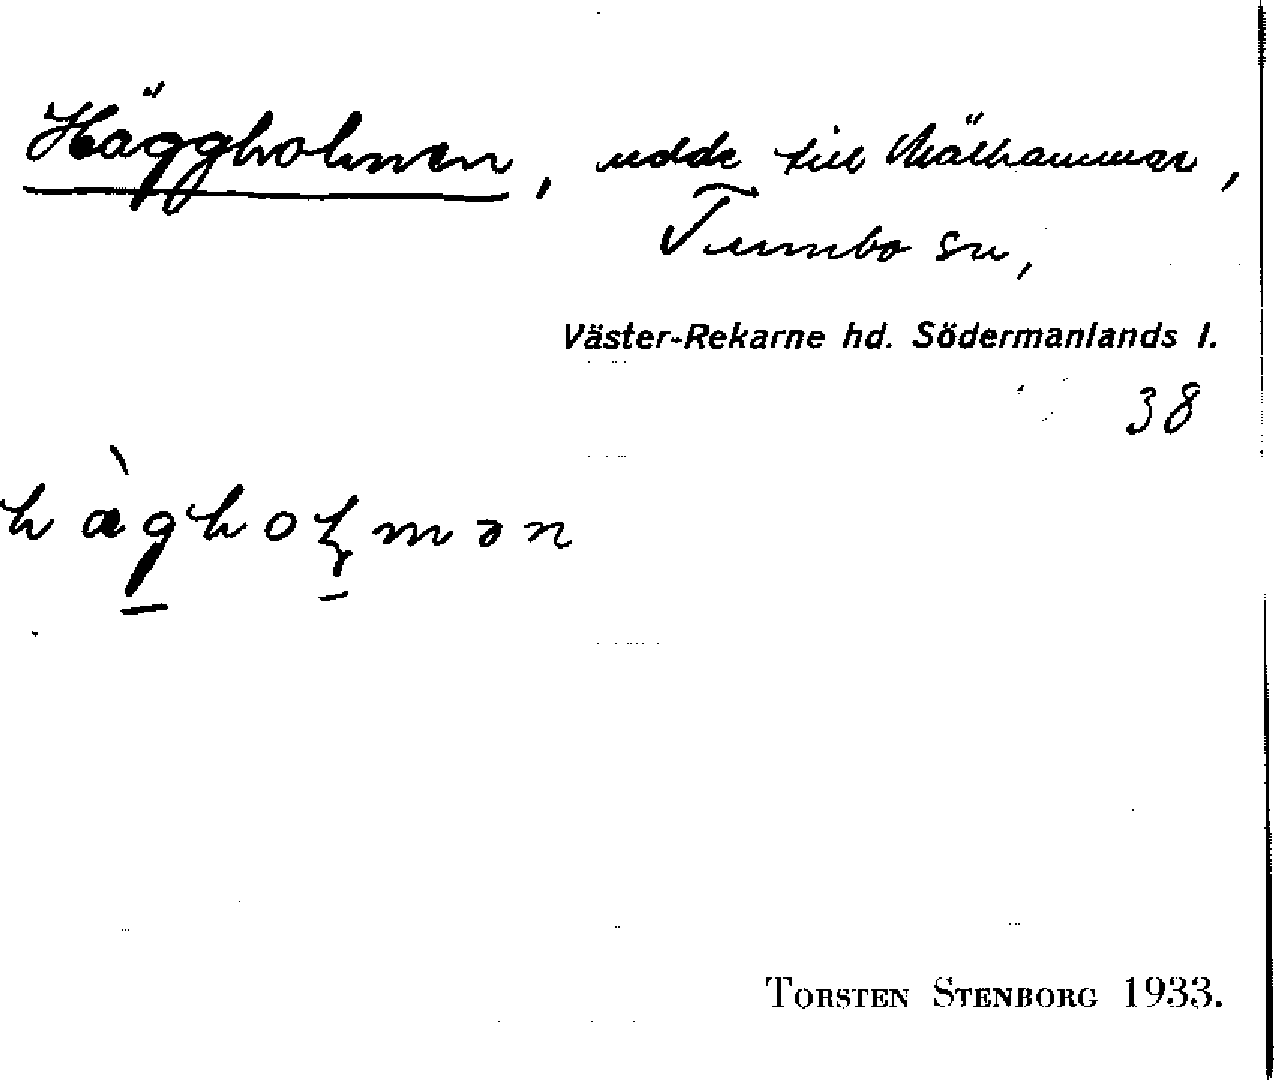 Häggholmen, udde till Mälhammar,
Tumbo sn,
Väster-Rekarne hd. Södermanlands l.
38
hæ̀gholmən
TORSTEN STENBORG 1933.